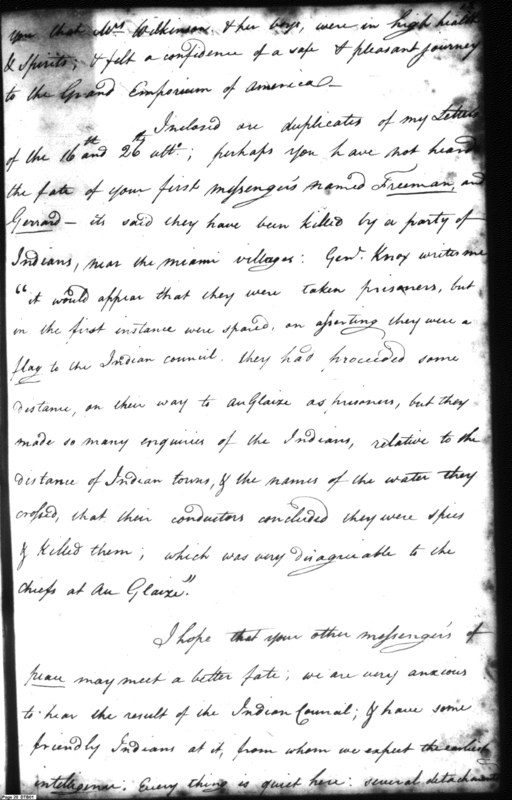 you that Mrs Wilkinson & her boys, were in high health
& spirits; & felt a confidence of a safe & pleasant journey
to the Grand Emporium of america—
Inclosed are duplicates of my Letters
of the 16th and 26th ulto.; perhaps you have not heard
the fate of your first messengers named Freeman, and
Gerrard — its said they have been killed by a party of
Indians, near the miami villages: Genl. Knox writes me
"it would appear that they were taken prisoners, but
in the first instance were spared, on asserting they were a
flag to the Indian council. they had proceeded some
distance, on their way to auGlaize as prisoners, but they
made so many enquiries of the Indians, relative to the
distance of Indian towns, & the names of the water they
crossed, that their conductors concluded they were spies
& killed them; which was very disagreeable to the
chiefs at Au Glaize."
I hope that your other messengers of
peace may meet a better fate; we are very anxious
to hear the result of the Indian Council; & have some
friendly Indians at it, from whom we expect the earliest
intelegence. Every thing is quiet here: several detachments